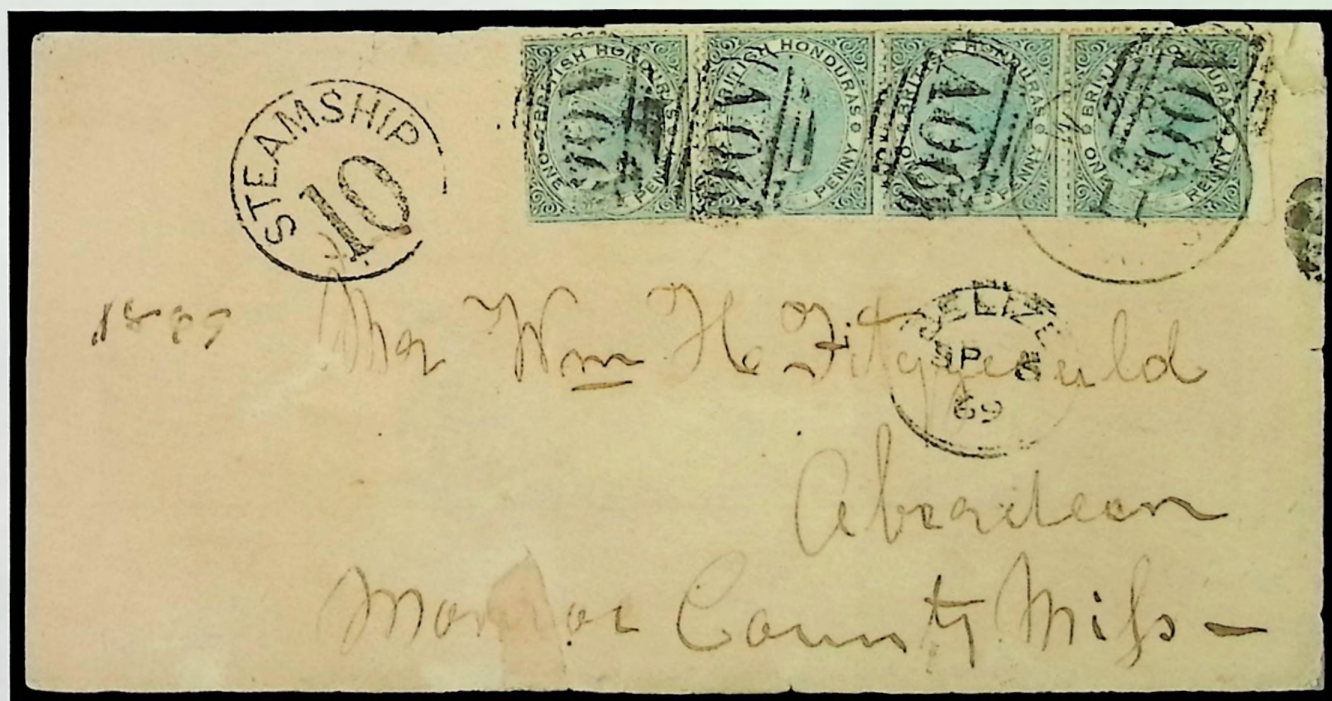 STEAMSHIP
10
BRITISH HONDURAS
ONE PENNY
A06
BRITISH HONDURAS
PENNY
A06
BRITISH HONDURAS
PENNY
A06
BRITISH HONDURAS
ONE PENNY
A06
11
BELIZE
SP
69
Mr Wm H Fitzgerald
Aberdeen
Monroe County Miss -